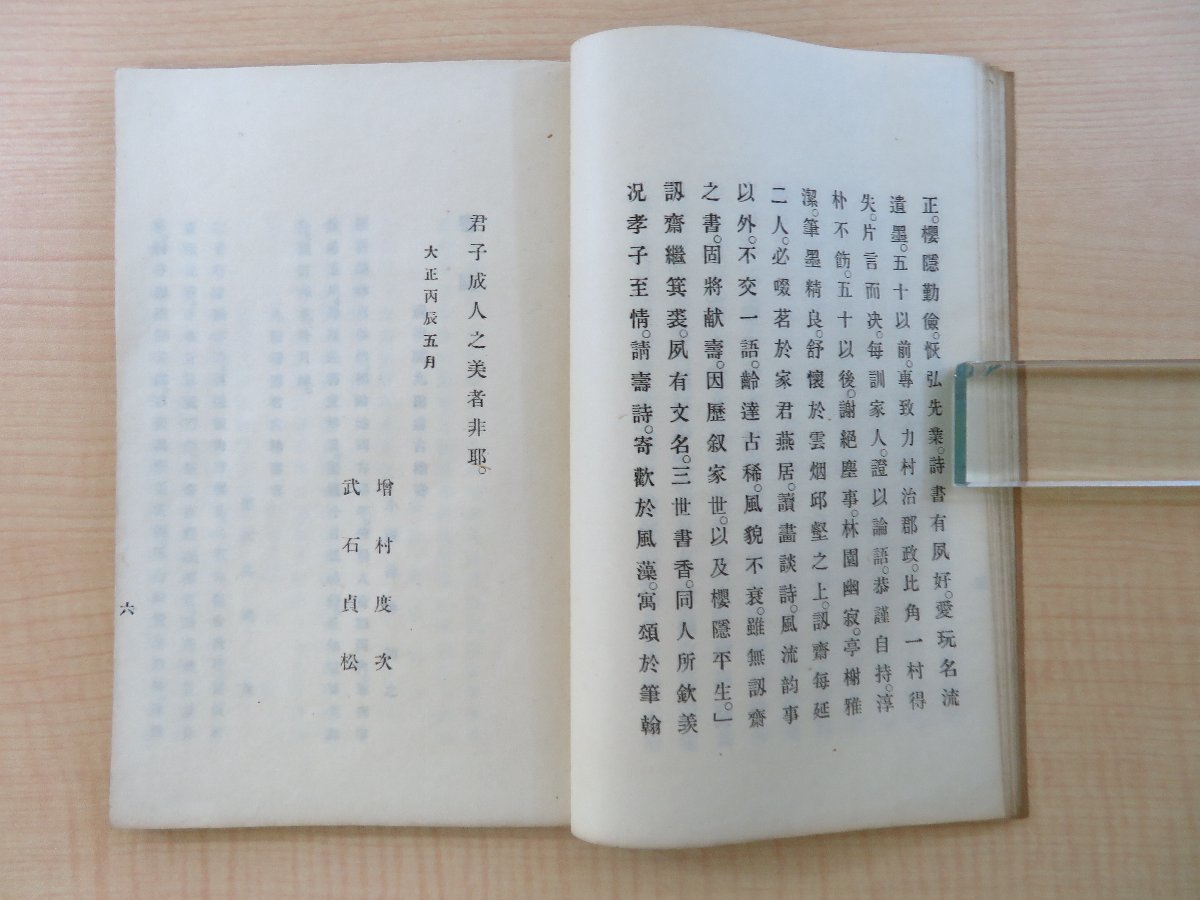 正。櫻隱勤儉。恢弘先業。詩書有夙好。愛玩名流
遺墨。五十以前。專致力村治郡政。比角一村得
失。片言而决。每訓家人。證以論語。恭謹自持。淳
朴不飭。五十以後。謝絕塵事。林園幽寂。亭榭雅
潔。筆墨精良。舒懷於雲烟邱壑之上。訒齋每延
二人。必啜茗於家君燕居。讀畫談詩。風流韵事
以外。不交一語。齡達古稀。風貌不衰。雖無訒齋
之書。固將献壽。因歷叙家世。以及櫻隱平生。」
訒齋繼箕裘。夙有文名。三世書香。同人所欽羨
况孝子至情。請壽詩。寄歡於風藻。寓頌於筆翰
君子成人之美者非耶。
大正丙辰五月
增村度次
武石貞松
六